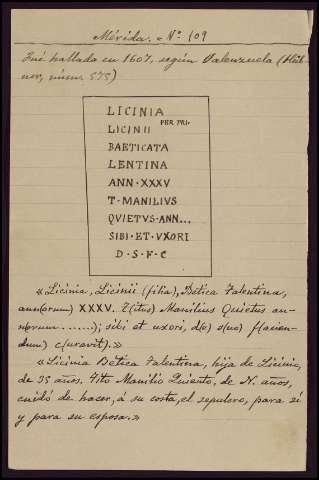 Mérida. - Nº 109
Fué hallada en 1607, según Valenzuela (Hüb-
ner, núm. 575)
LICINIA
PER PRI.
LICINII
BAETICATA
LENTINA
ANN·XXXV
T·MANILIVS
QVIETVS·ANN...
SIBI·ET·VXORI
D·S·F·C
«Licinia, Licinii (filia), Betica Talentina,
ann(orum) XXXV. T(itus) Manilius Quietus an-
n(orum ........); sibi et uxori, d(e) s(uo) f(acien-
dum) c(uravit).»
«Licinia Betica Talentina, hija de Licinio,
de 35 años. Tito Manilio Quieto, de N. años,
cuidó de hacer, á su costa, el sepulcro, para sí
y para su esposa.»